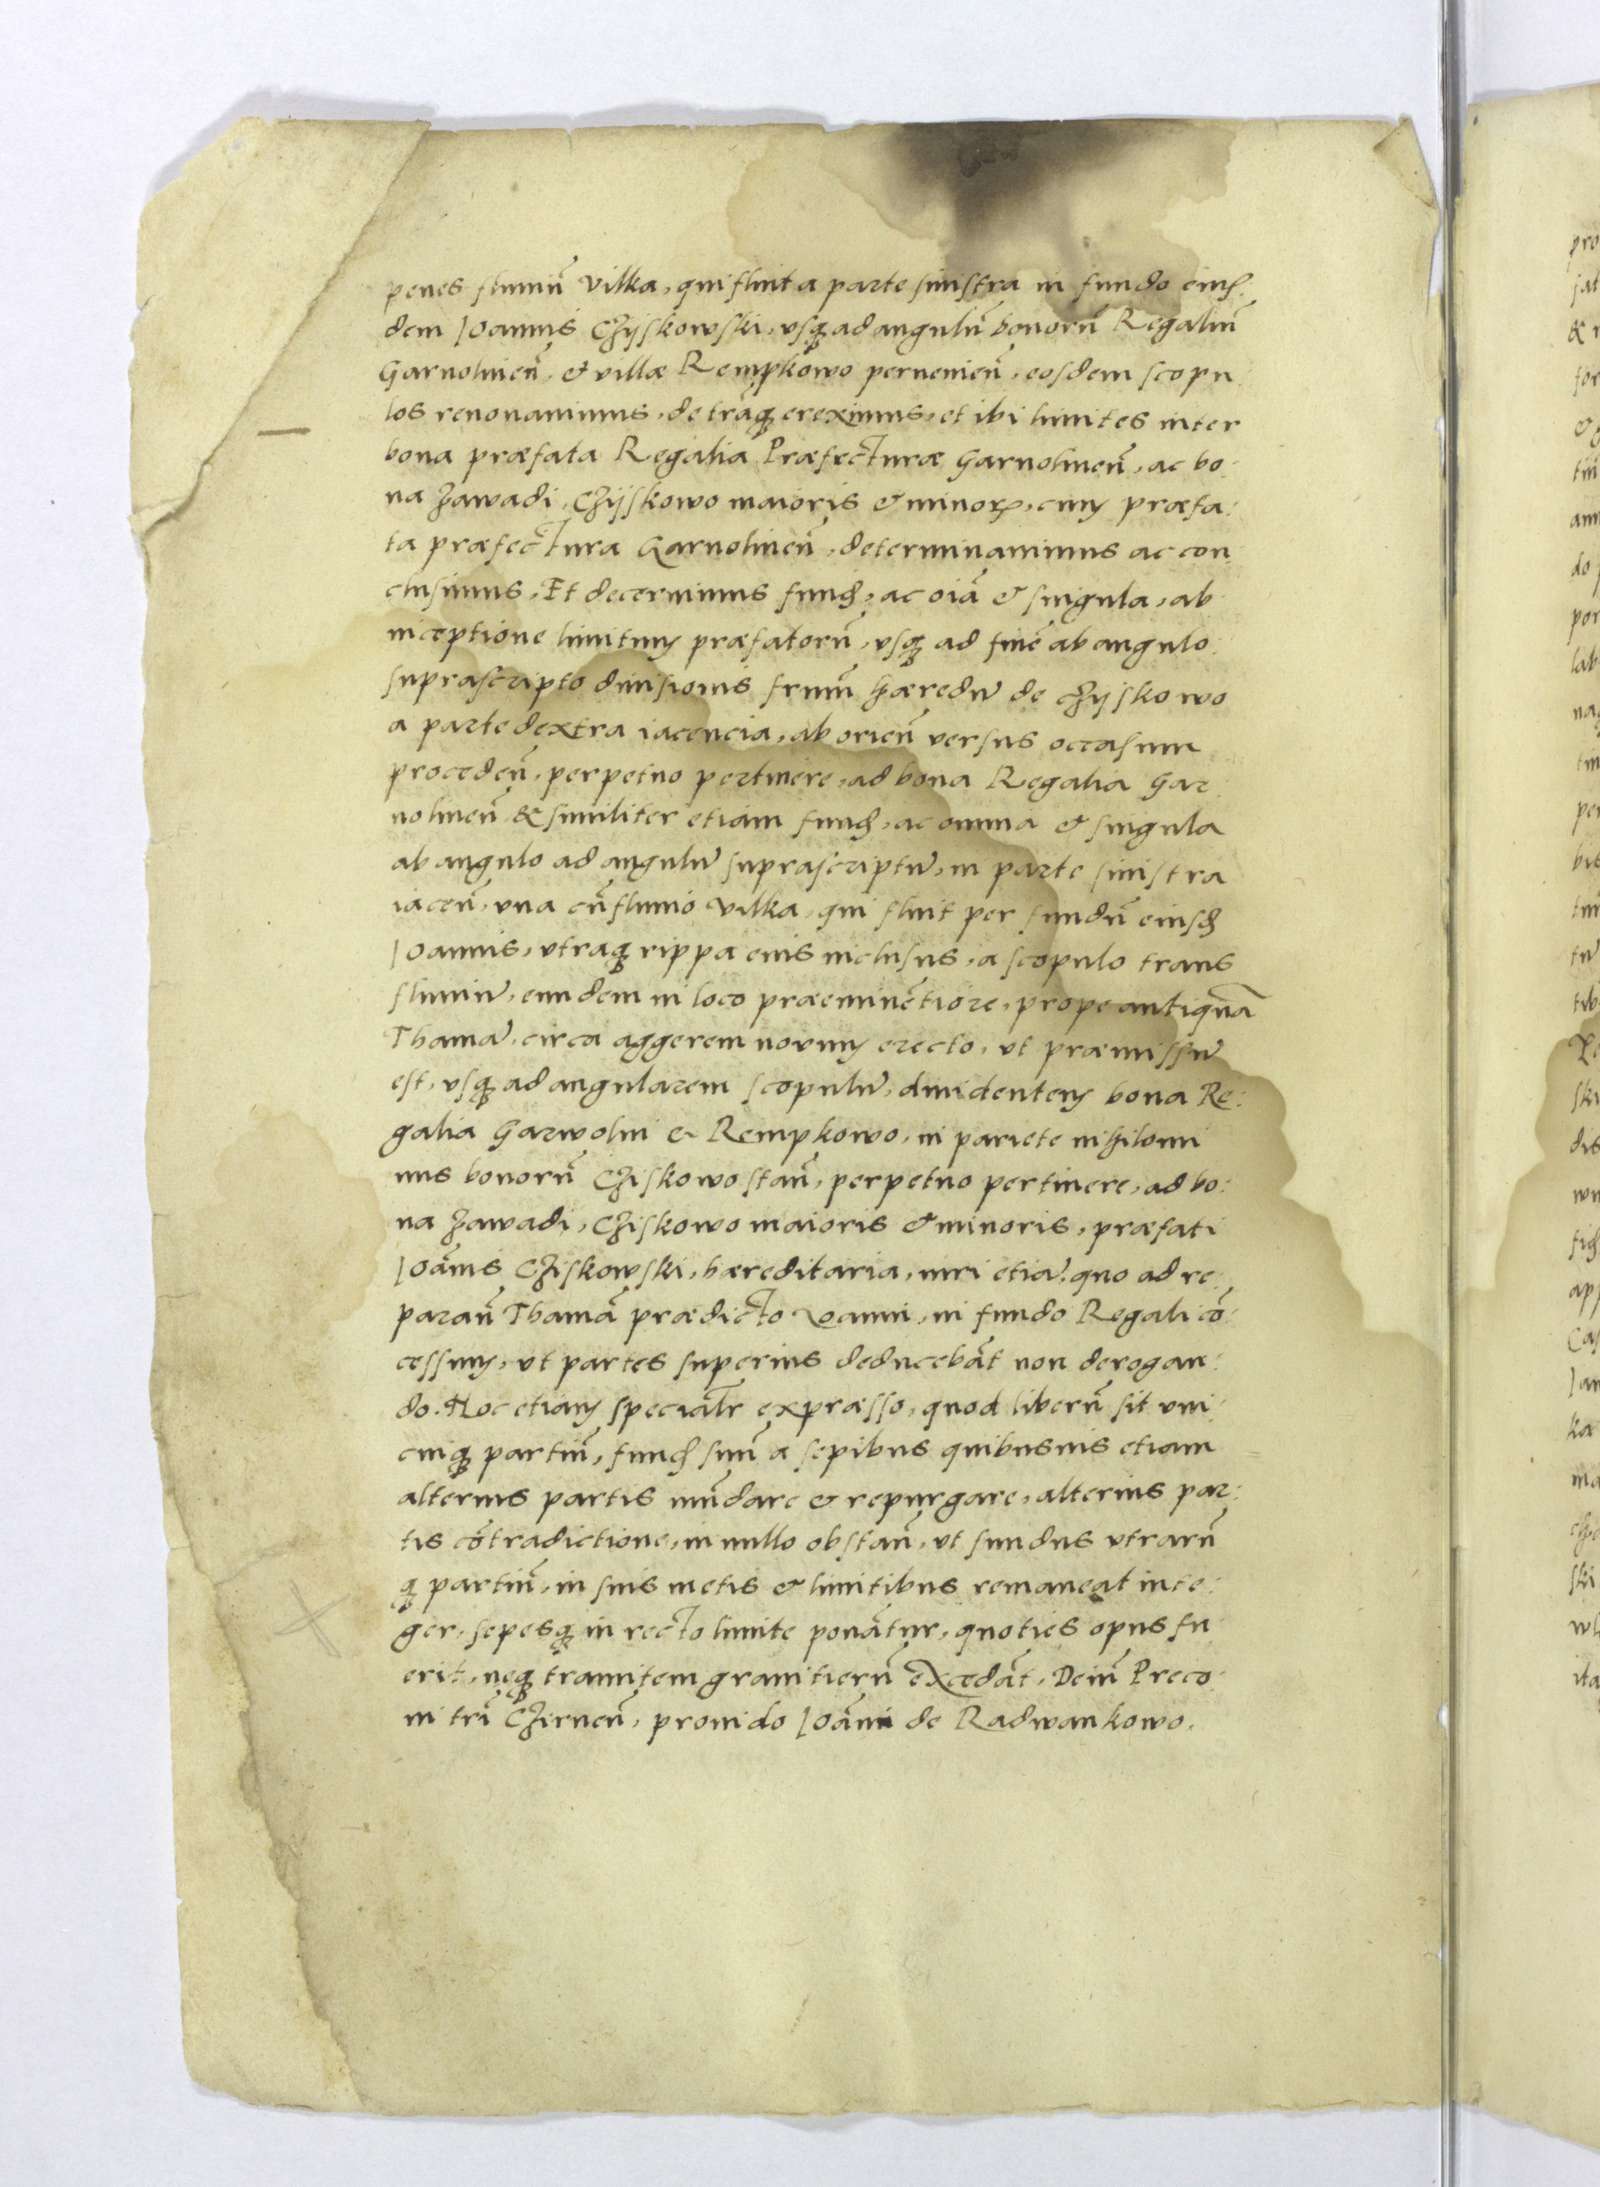 penes fluuiũ Vilka, qui fluit a parte sinistra in fundo eius:
dem Ioannis Chijskowski, usq̃ ad angulũ bonorũ Regaliũ
Garuolineñ, et villæ Rempkowo perueniẽñ, eosdem scopu
los renouauimus, de trãq̃ ereximus, et ibi limites inter
bona præfata Regalia Præfecturæ Garuolineñ, ac bo:
na Zawadi, Chijskowo maioris & minoꝝ, cum præfa:
ta præfectura Garuolineñ, determinauimus ac con
clusimus, Et decernimus fund, ac oĩa & singula, ab
inceptione limitum præfatorũ, usq̃ ad finẽ ab angulo
suprascripto diuisionis frum̃ hæredũ de Chijskowo
a parte dextra iacencia, ab orieñ versus occasum
procedeñ, perpetuo pertinere, ad bona Regalia Gar
uolineñ & similiter etiam fund, ac omnia & singula
ab angulo ad angulũ suprascriptũ, in parte sinistra
iaceñ, una cũ fluuio Vilka, qui fluit per fundũ eiusd
Ioannis, utraq̃ rippa eius inclusus, a scopulo trans
fluuiũ, eundem in loco præeminẽtiore, prope antiquã
Thamã, circa aggerem nouum erecto, ut præmissũ
est, usq̃ ad angularem scopulũ, diuidentem bona Re:
galia Garwolin & Rempkowo, in pariete nihilomi
nus bonorũ Chiskowo stañ, perpetuo pertinere, ad bo:
na Zawadi, Chiskowo maioris & minoris, præfati
Ioãnis Chiskowski, hæreditaria, iuri etiã quo ad re:
parañ Thamã prædicto Ioanni, in fundo Regali cõ:
cessum, ut partes superius deducebãt non derogan:
do. Hoc etiam specialr̃ expræsso, quod liberũ sit uni:
cuiq̃ partiũ, fund suũ a sepibus quibusuis etiam
alterius partis mũdare & repurgare, alterius par:
tis cõtradictione, in nullo obstañ, ut fundus utrarũ
q̃ partiũ, in suis metis & limitibus remaneat inte:
ger, sepesq̃ in recto limite ponãtur, quoties opus fu
erit, neq̃ tramitem granitierũ excedãt, Deiñ Preco:
ni trĩ Chirneñ, prouido Ioãni de Radwankowo.